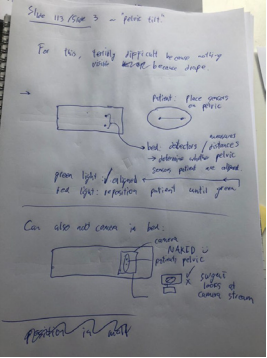 Slide 3 - "pelvic tilt"
For this, terribly difficult because nothing
visible because drape
Patient: Place sensors
on pelvic
bed: detectors / distances
→ determine whether pelvic
sensors patient are aligned.
green light: ✓ aligned
red light: reposition patient until green
Can also put camera in bed:
camera
NAKED
patients pelvic
surgeon
looks at
camera stream